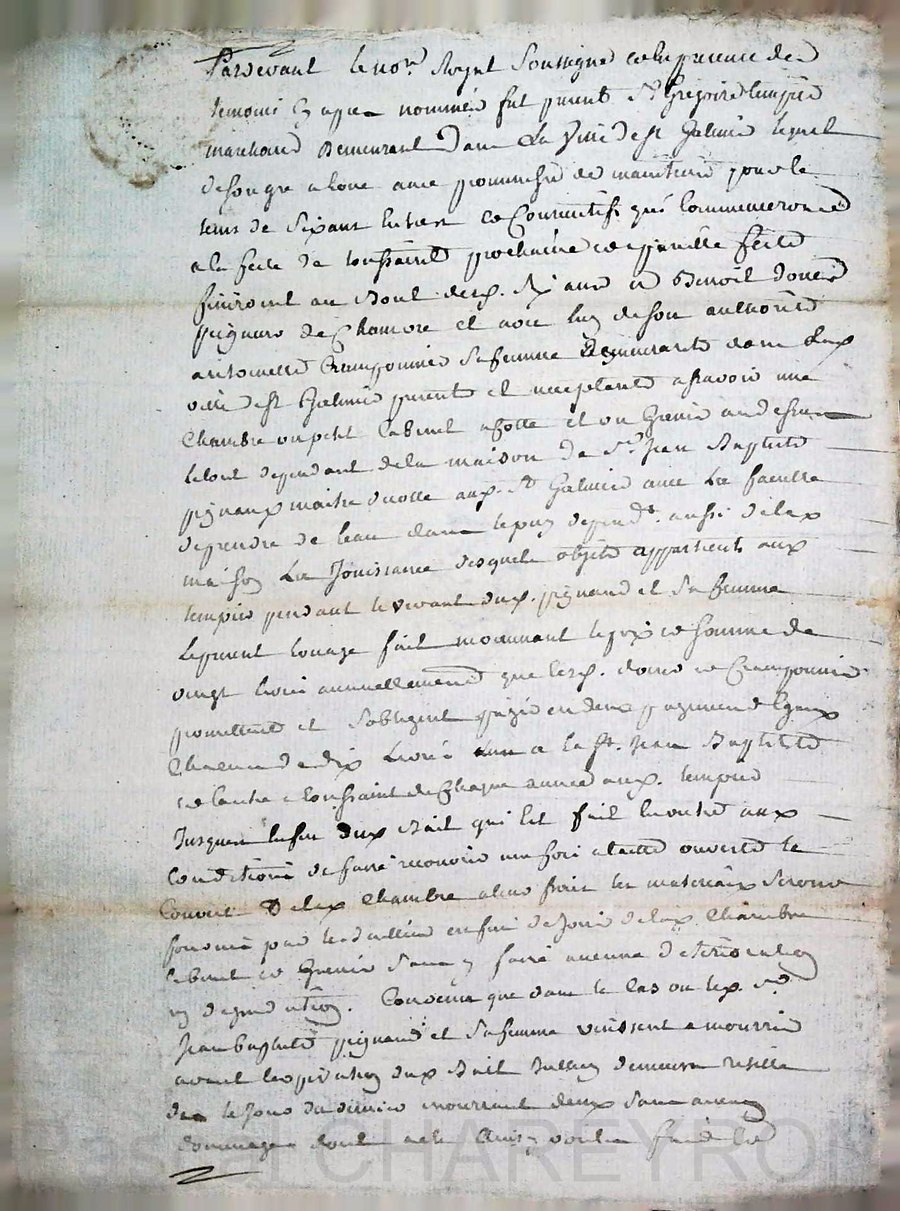 Pardevant le no.re Royal Soussigné et en presence des
temoins cy apres nommés fut present Sr Grégoire tempier
marchand Demeurant Dans La Ville de st Galmier lequel
de son gre a loué avec promesse de maintenir pour le
tems de six ans entiers et Consecutifs qui Commenceront
a la feste de toussaint prochaine et a pareille feste
finiront au Bout desd. six ans a Benoit
peigneur de Chanvre et avec luy de son authorité
antoinette sa femme Demeurants dans Lad
ville de st Galmier presents et acceptants a scavoir une
Chambre un petit Cabinet a Cotté et un Grenier au dessus
le tout dependant de la maison de Sr Jean Baptiste
pignaux maitre aud. St Galmier avec La faculté
de prendre de leau dans le puy depend.t aussi de lad
maison La Jouissance desquels objets appartient aud
tempier pendant le vivant dud. pignaud et sa femme
Le present louage fait moyennant le prix et somme de
vingt livres annuellement que lesd.
promettent et sobligent payer en deux payements Egaux
Chacun de dix Livres Lun a la st. Jean Baptiste
et lautre a toussaint de Chaque année aud. tempier
Jusques a la fin dud Bail qui est fait en outre aux
Conditions de faire recouvrir une fois a taille ouverte le
Couvert De lad Chambre a leurs frais les materiaux seront
fournis par le enfin de Jouir de lad Chambre
Cabinet et Grenier Sans y faire aucune deterioration
ny degradation. Convenu que dans le Cas ou led. Sr
Jean Baptiste pignaud et sa femme vinssent a mourir
avant lexpiration dud Bail demeure resilié
des le Jour du dernier mourant deux Sans aucun
dommages dont acte Ainsy voulu fait Et